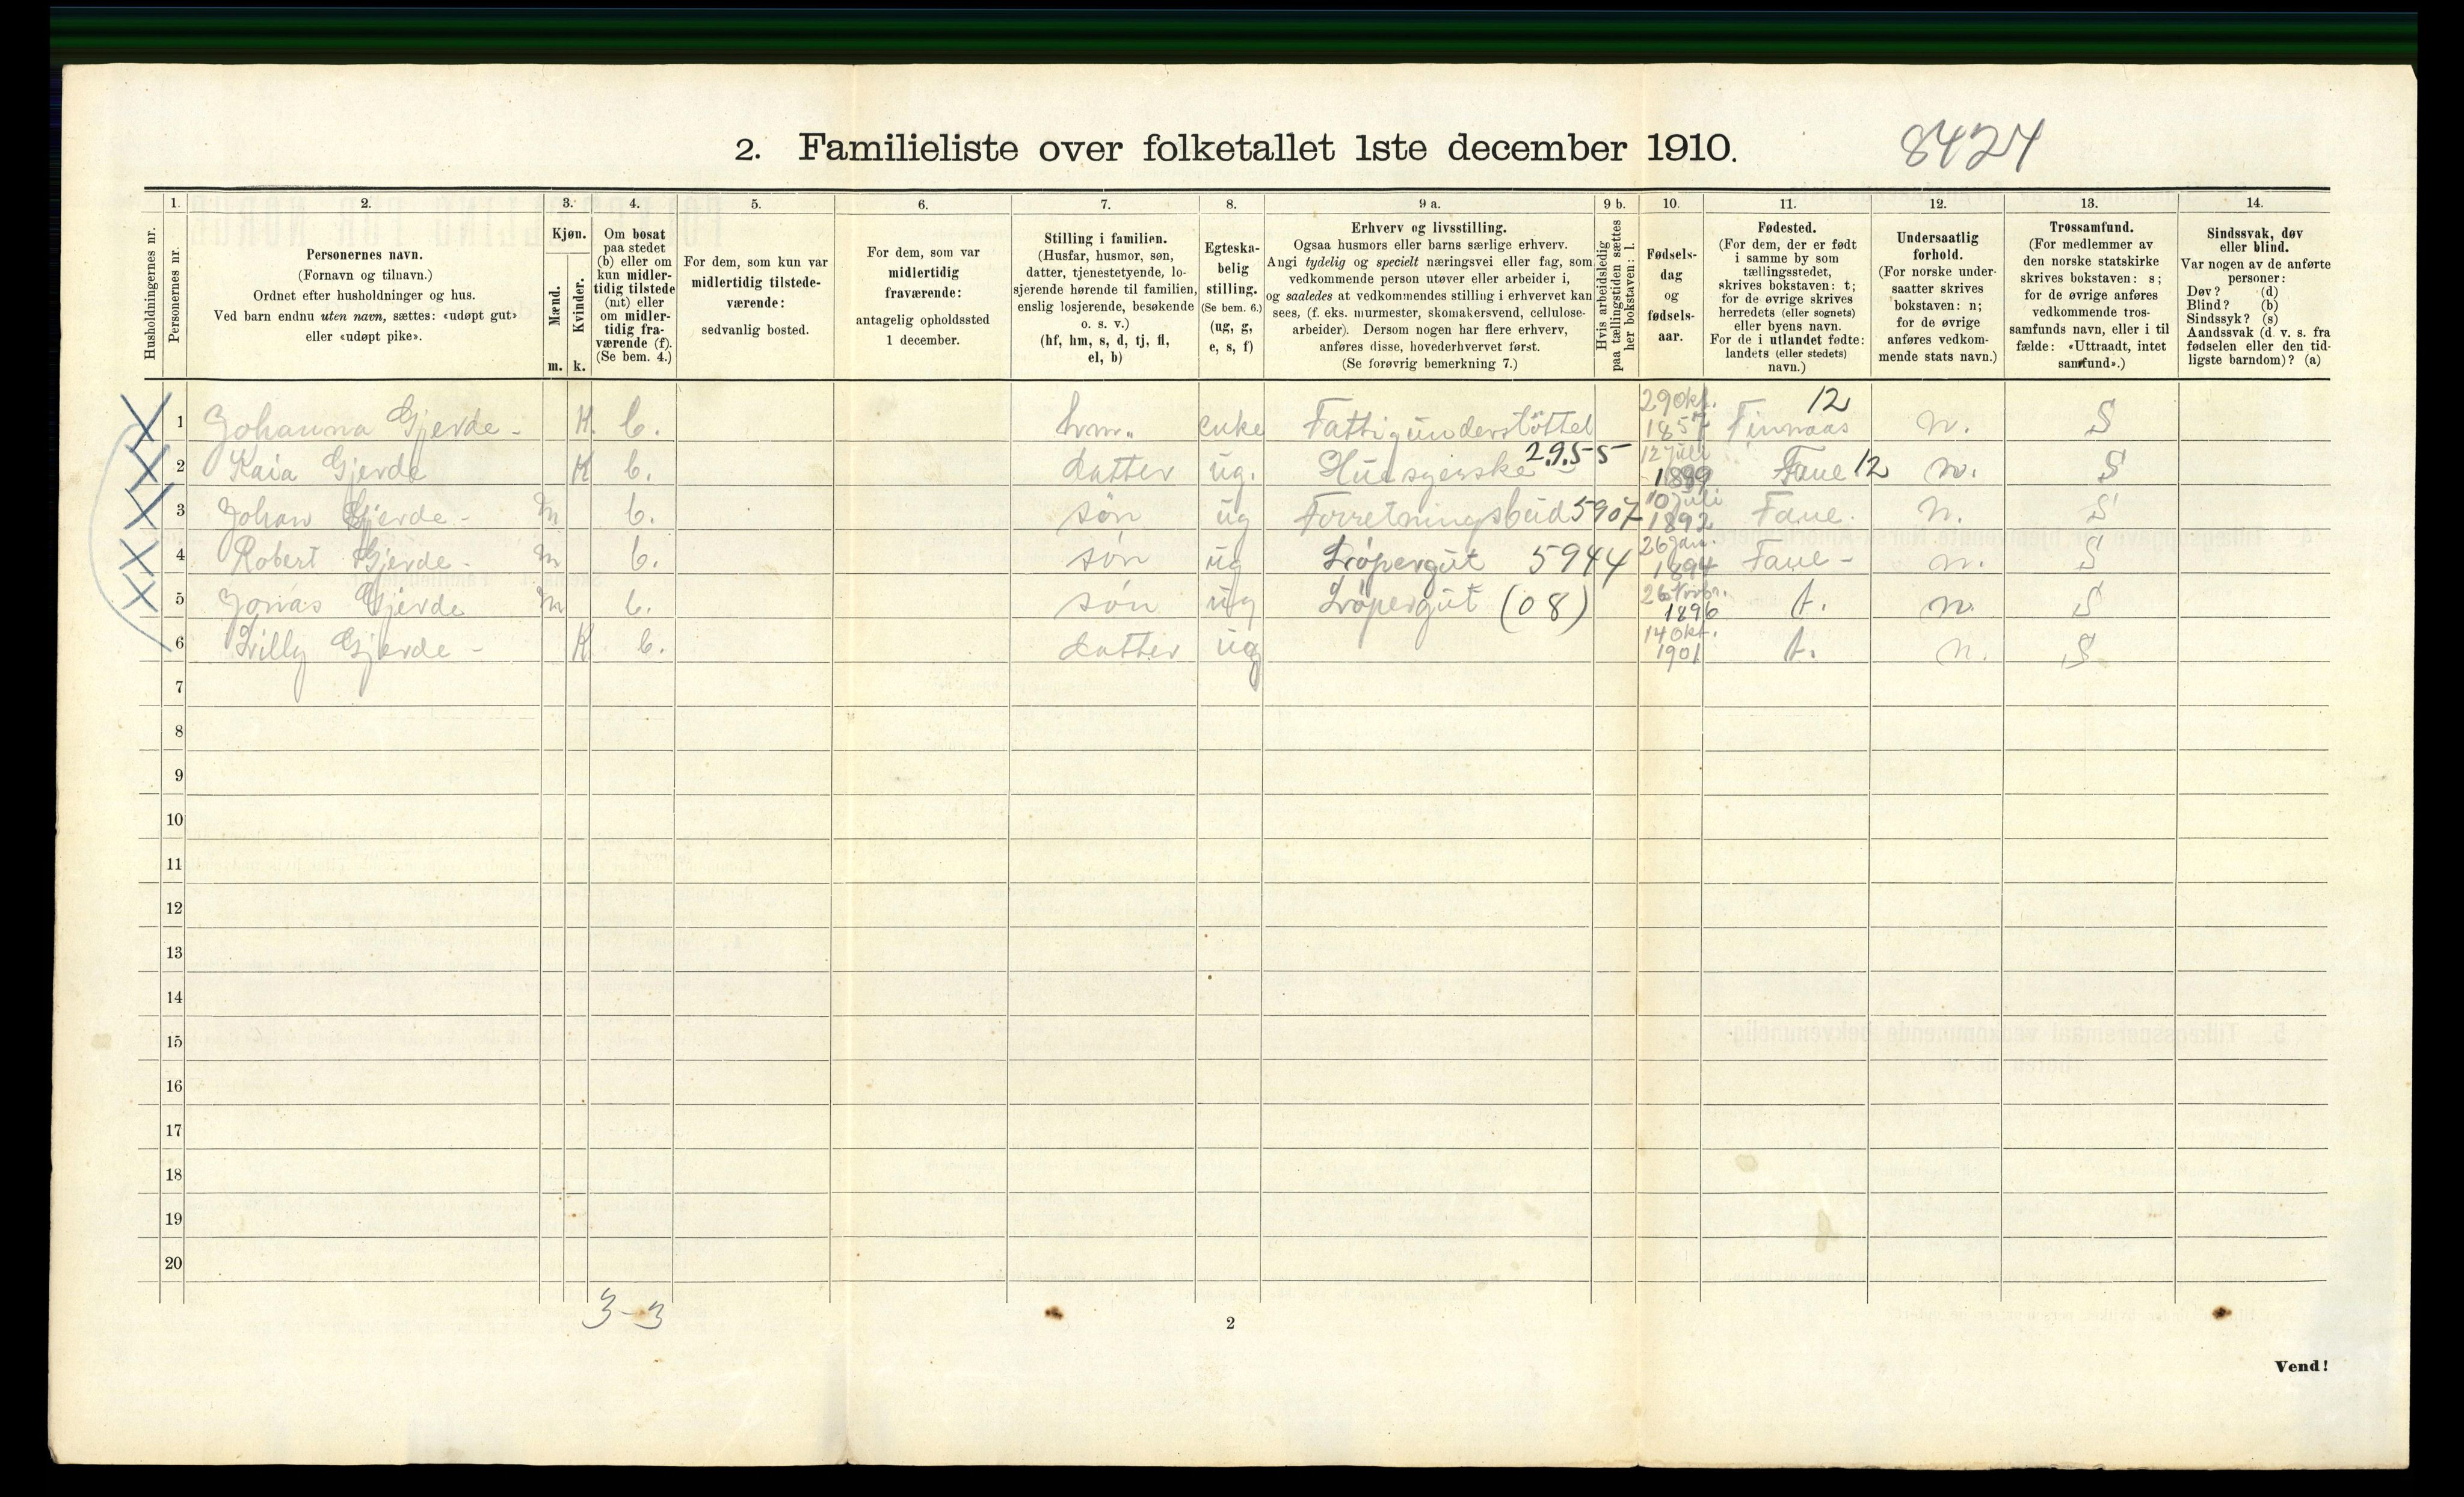 2. Familieliste over folketallet 1ste december 1910.
8424
Husholdningernes nr.
1.
Personernes nr.
2.
Personernes navn.
(Fornavn og tilnavn.)
Ordnet efter husholdninger og hus.
Ved barn endnu uten navn, sættes: «udøpt gut»
eller «udøpt pike».
3.
Kjøn.
Mænd.
m.
Kvinder.
k.
4.
Om bosat
paa stedet
(b) eller om
kun midler-
tidig tilstede
(mt) eller
om midler-
tidig fra-
værende (f).
(Se bem. 4.)
5.
For dem, som kun var
midlertidig tilstede-
værende:
sedvanlig bosted.
6.
For dem, som var
midlertidig
fraværende:
antagelig opholdssted
1 december.
7.
Stilling i familien.
(Husfar, husmor, søn,
datter, tjenestetyende, lo-
sjerende hørende til familien,
enslig losjerende, besøkende
o. s. v.)
(hf, hm, s, d, tj, fl,
el, b)
8.
Egteska-
belig
stilling.
(Se bem. 6.)
(ug, g,
e, s, f)
9 a.
Erhverv og livsstilling.
Ogsaa husmors eller barns særlige erhverv.
Angi tydelig og specielt næringsvei eller fag, som
vedkommende person utøver eller arbeider i,
og saaledes at vedkommendes stilling i erhvervet kan
sees, (f. eks. murmester, skomakersvend, cellulose-
arbeider). Dersom nogen har flere erhverv,
anføres disse, hovederhvervet først.
(Se forøvrig bemerkning 7.)
9 b.
Hvis arbeidsledig
paa tællingstiden sættes
her bokstaven: l.
10.
Fødsels-
dag
og
fødsels-
aar.
11.
Fødested.
(For dem, der er født
i samme by som
tællingsstedet,
skrives bokstaven: t;
for de øvrige skrives
herredets (eller sognets)
eller byens navn.
For de i utlandet fødte:
landets (eller stedets)
navn.)
12.
Undersaatlig
forhold.
(For norske under-
saatter skrives
bokstaven: n;
for de øvrige
anføres vedkom-
mende stats navn.)
13.
Trossamfund.
(For medlemmer av
den norske statskirke
skrives bokstaven: s;
for de øvrige anføres
vedkommende tros-
samfunds navn, eller i til
fælde: «Uttraadt, intet
samfund».)
14.
Sindssvak, døv
eller blind.
Var nogen av de anførte
personer:
Døv? (d)
Blind? (b)
Sindssyk? (s)
Aandssvak (d. v. s. fra
fødselen eller den tid-
ligste barndom)? (a)
X 1 Johanna Gjerde - K. b. hm. enke Fattigunderstöttet 29 okt. 1857 Finnaas 12 n. S
X 2 Kaia Gjerde K b. datter ug. Husgerske 29.55 12 juli Fane 12 n. S
X 3 Johan Gjerde - m b. søn ug Forretningsbud 5907 10 juli 1892 Fane. n. S
X 4 Robert Gjerde - m b. søn ug Løpergut 5944 26 jan. 1894 Fane - n. S
XX 5 Jonas Gjerde m b. søn ug Løpergut (08) 26 Novbr. 1896 t. n. S
6 Lilly Gjerde - K b. datter ug 14 okt. 1901 t. n. S
7
8
9
10
11
12
13
14
15
16
17
18
19
20
3-3
2
Vend!